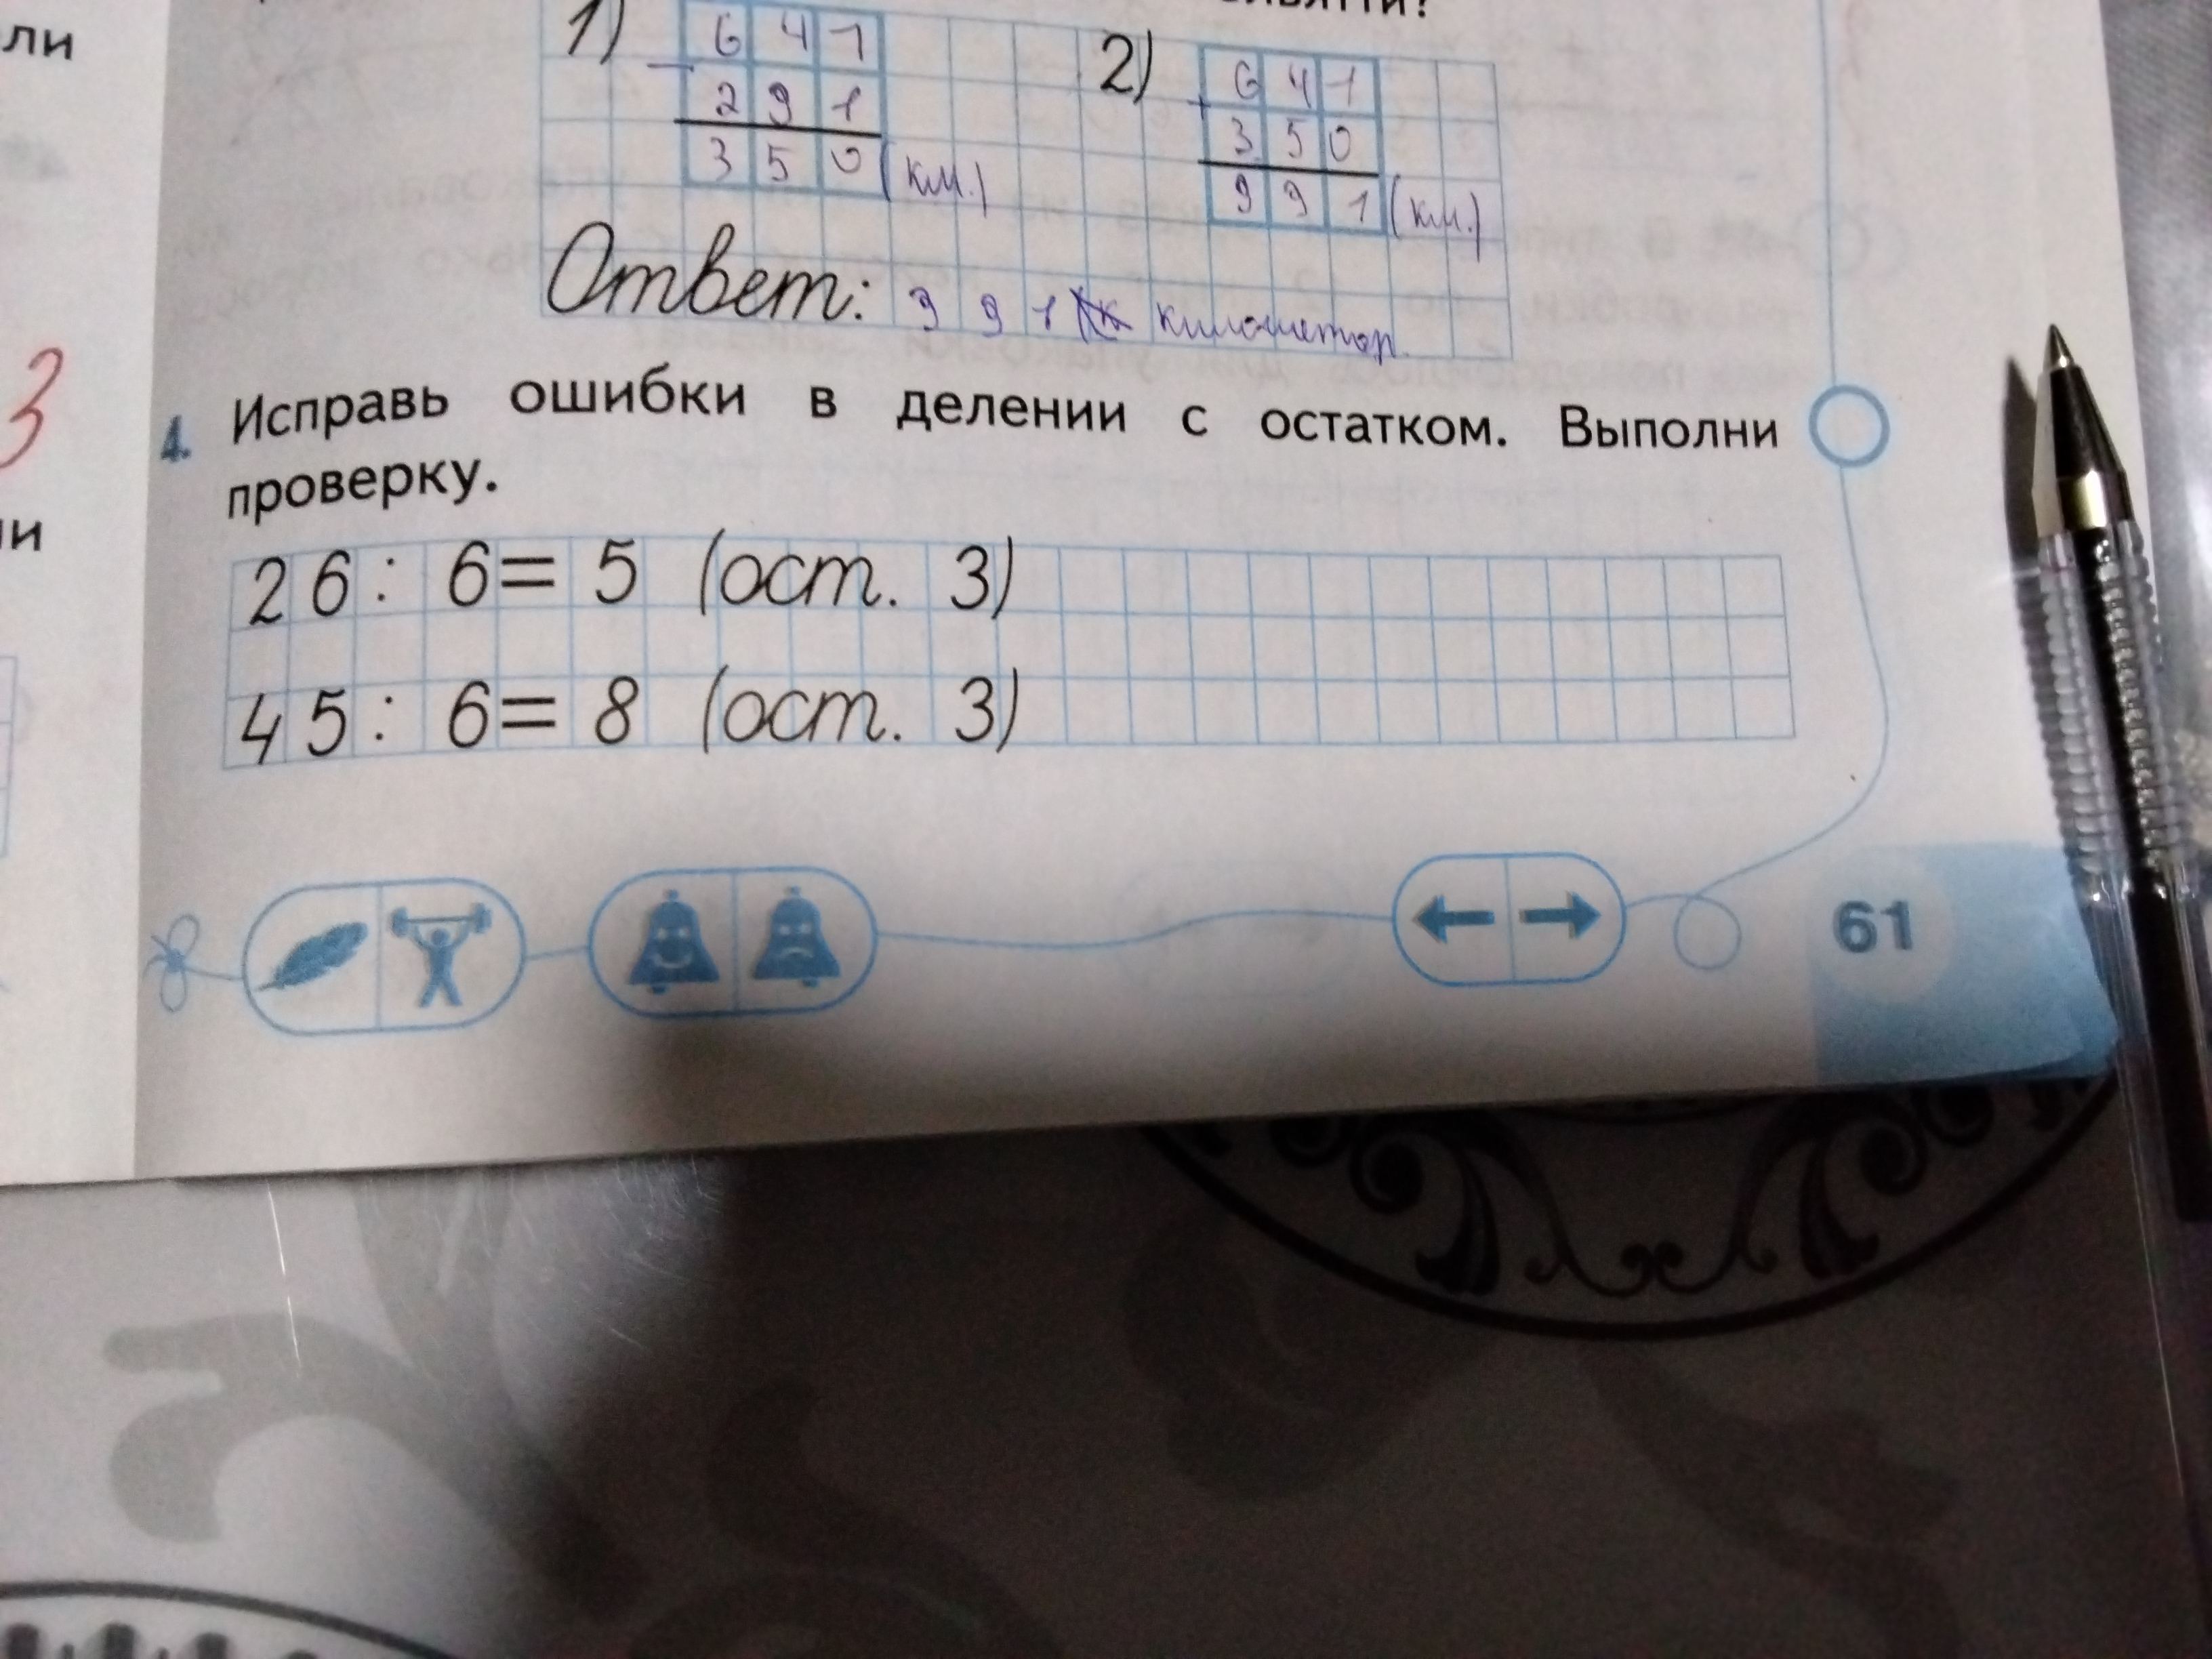 ли
1) 6 4 1
2) 6 4 1
- 2 9 1
+ 3 5 0
3 5 0 (км.)
9 9 1 (км.)
Ответ: 9 9 1 километр.
3
4. Исправь ошибки в делении с остатком. Выполни
проверку.
и
26 : 6 = 5 (ост. 3)
45 : 6 = 8 (ост. 3)
61